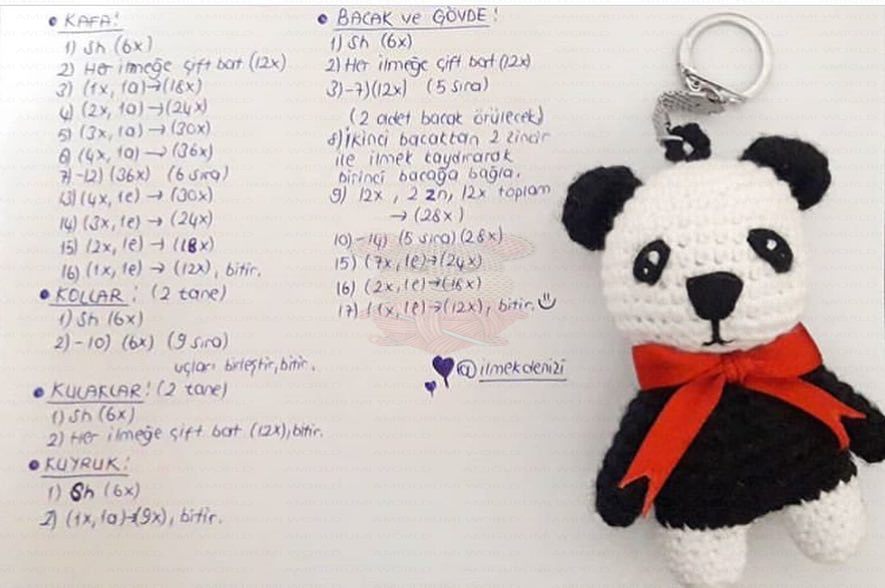 • KAFA!
1) Sh (6x)
2) Her ilmeğe çift bat (12x)
3) (1x, 1a)→(18x)
4) (2x, 1a)→(24x)
5) (3x, 1a)→(30x)
6) (4x, 1a)→(36x)
7)-12) (36x) (6 sıra)
13) (4x, 1e)→(30x)
14) (3x, 1e)→(24x)
15) (2x, 1e)→(18x)
16) (1x, 1e)→(12x), bitir.
• KOLLAR! (2 tane)
1) Sh (6x)
2)-10) (6x) (9 sıra)
uçları birleştir, bitir.
• KULAKLAR! (2 tane)
1) Sh (6x)
2) Her ilmeğe çift bat (12x), bitir.
• KUYRUK!
1) Sh (6x)
2) (1x, 1a)→(9x), bitir.
• BACAK ve GÖVDE!
1) Sh (6x)
2) Her ilmeğe çift bat (12x)
3)-7) (12x) (5 sıra)
(2 adet bacak örülecek)
8) İkinci bacaktan 2 zincir
ile ilmek kaydırarak
birinci bacağa bağla.
9) 12x, 2 zn, 12x toplam
→ (28x)
10)-14) (5 sıra) (28x)
15) (7x, 1e)→(24x)
16) (2x, 1e)→(18x)
17) (1x, 1e)→(12x), bitir.
@ilmekdenizi